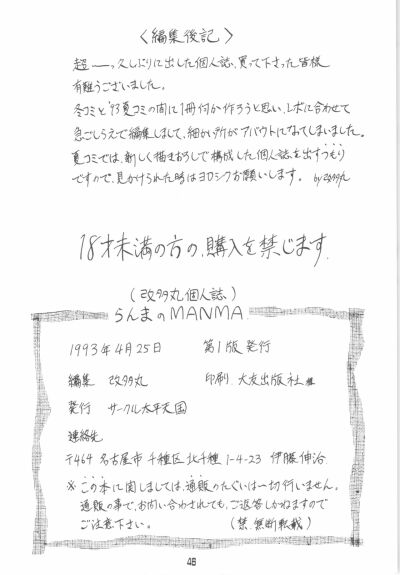 〈編集後記〉
超――っ久しぶりに出した個人誌、買って下さった皆様
有難うございました。
冬コミと'93夏コミの間に1冊何か作ろうと思い、レボに合わせて
急ごしらえで編集しまして、細かい所がアバウトになってしまいました。
夏コミでは、新しく描きおろしで構成した個人誌を出すつもり
ですので、見かけられた時はヨロシクお願いします。 by改多丸
18才未満の方の、購入を禁じます.
(改多丸個人誌)
らんまのMANMA
1993年4月25日 第1版発行
編集 改多丸 印刷 大友出版社
発行 サークル太平天国
連絡先
〒464 名古屋市千種区北千種1-4-23 伊藤伸治
※この本に関しましては、通販のたぐいは一切行いません。
通販の事で、お問い合わされても、ご返答しかねますので
ご注意下さい。 (禁.無断転載)
46